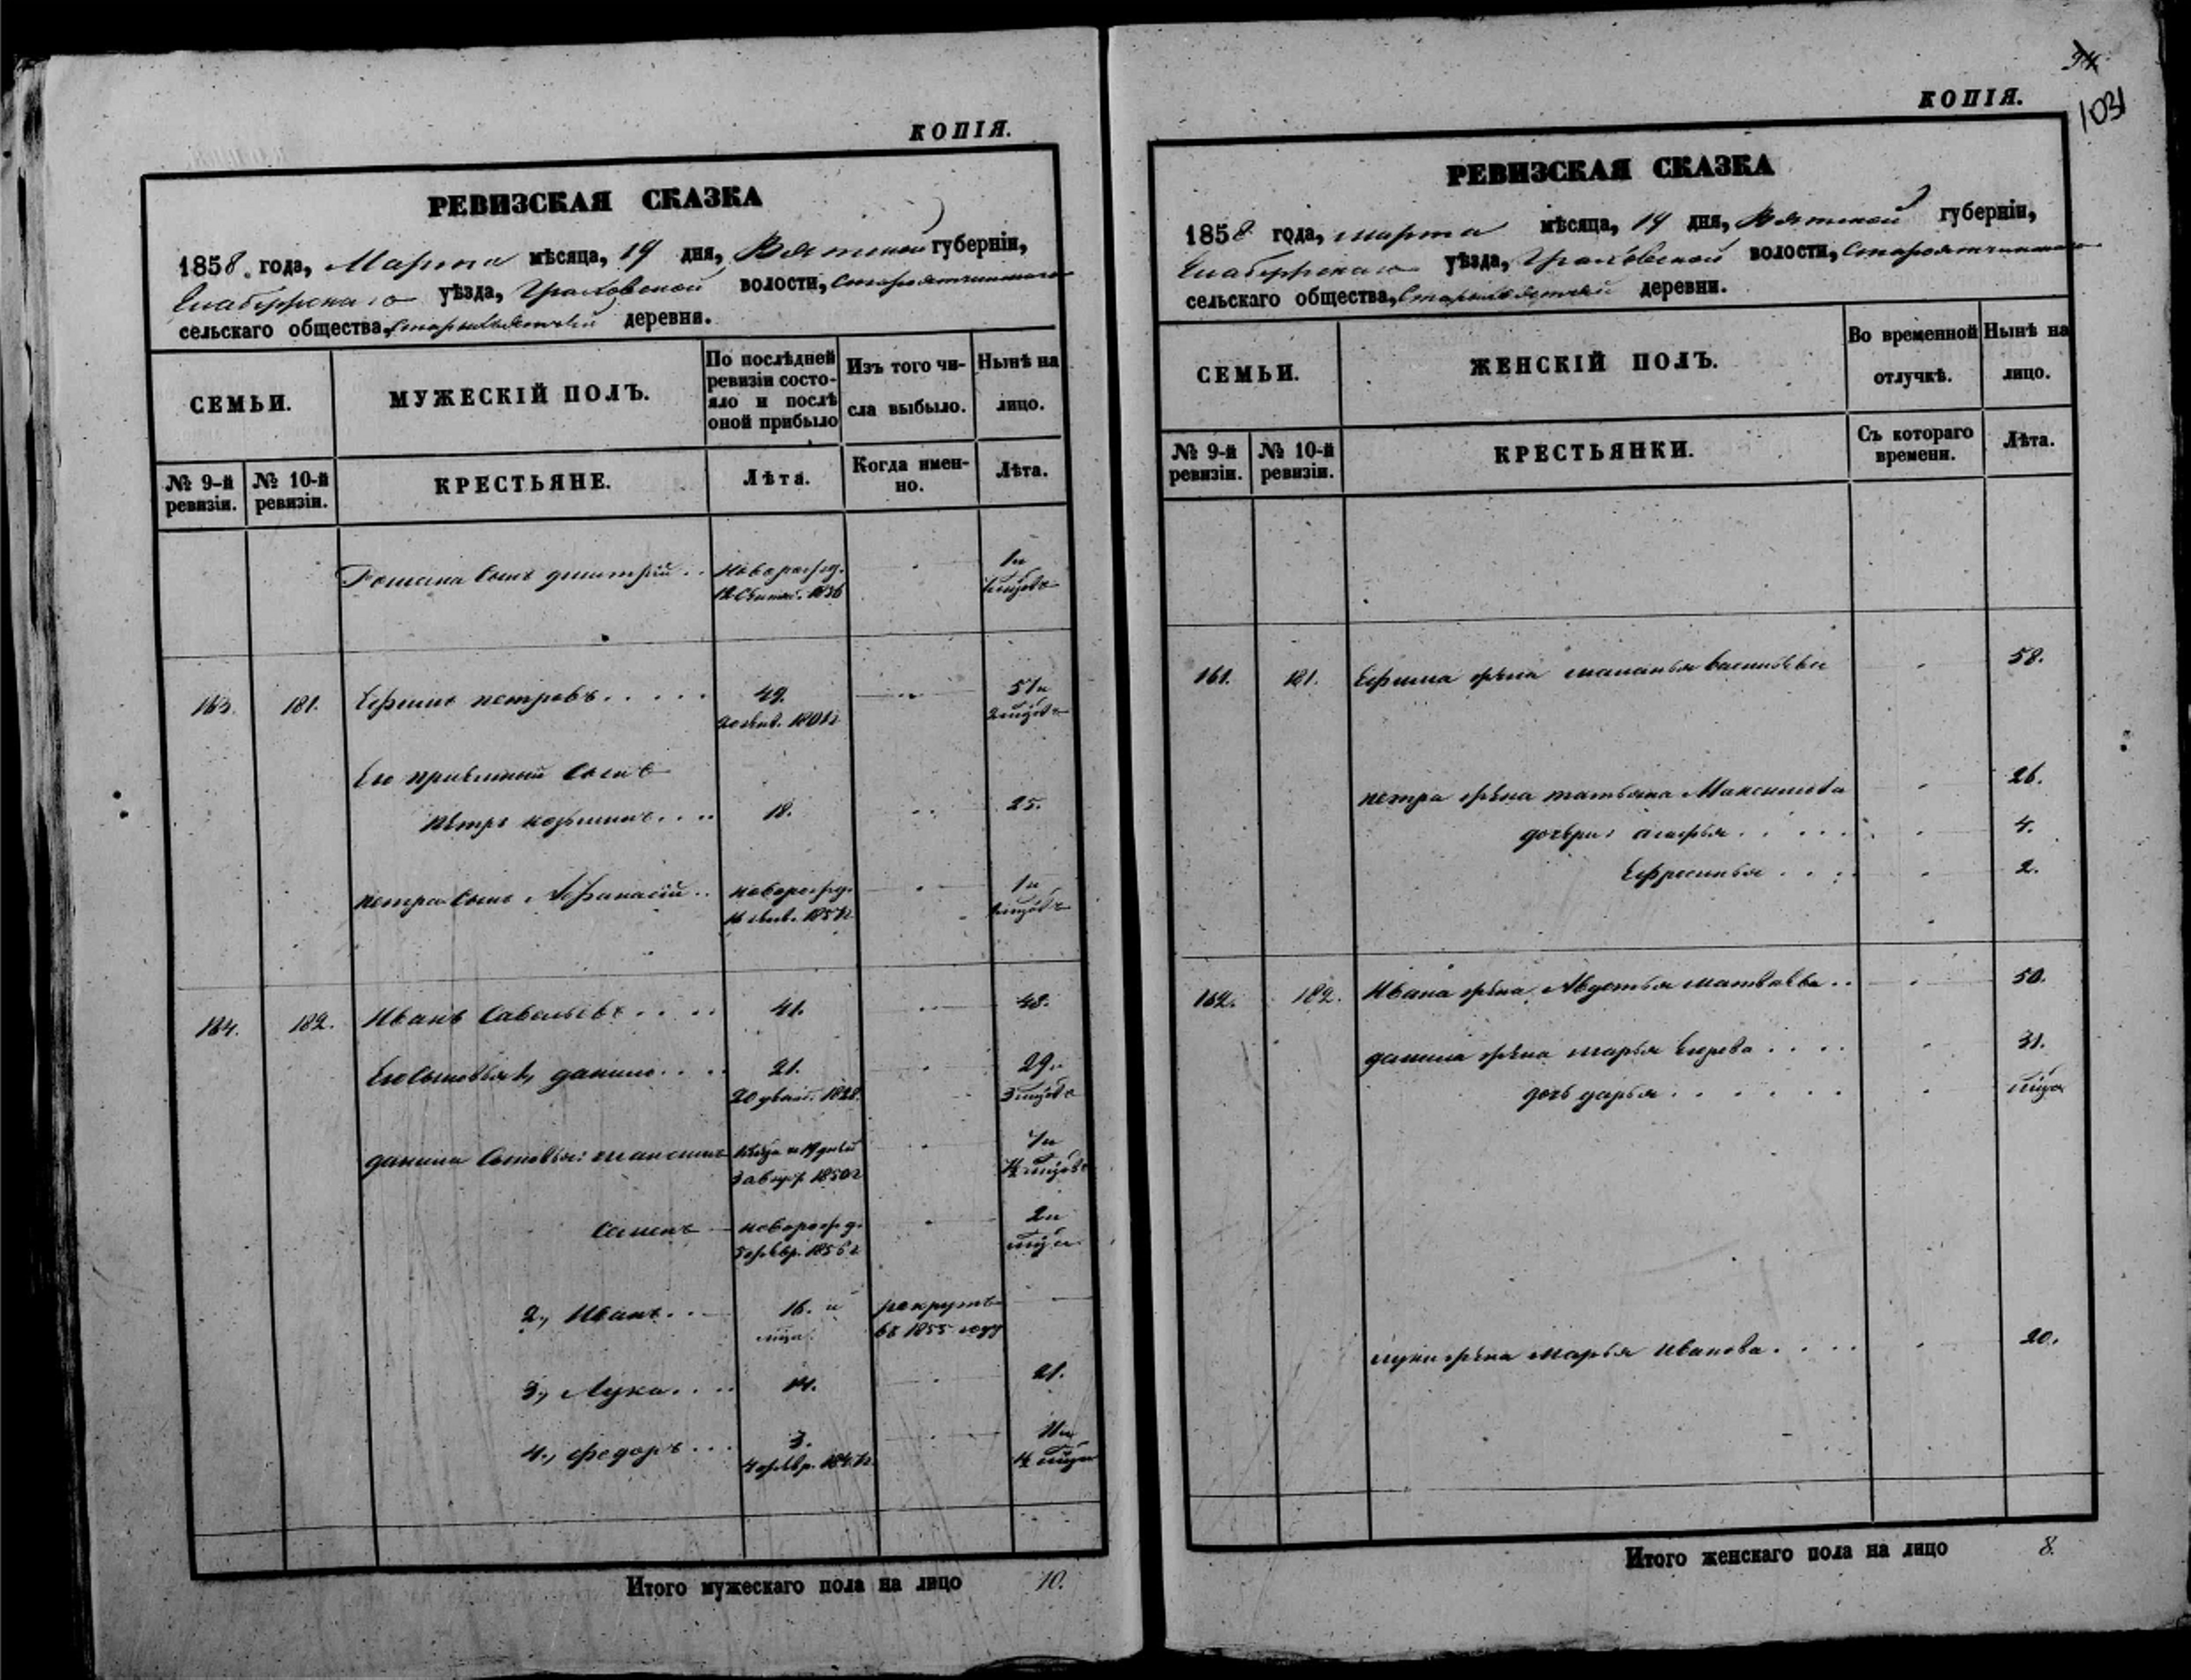 КОПІЯ.
РЕВИЗСКАЯ СКАЗКА
1858 года, Марта мѣсяца, 19 дня, Вятской губерніи,
Елабужскаго уѣзда, Граховской волости,
сельскаго общества, деревни.
СЕМЬИ.
МУЖЕСКІЙ ПОЛЪ.
По послѣдней ревизіи состо-
яло и послѣ оной прибыло
Изъ того чи-
сла выбыло.
Нынѣ на
лицо.
№ 9-й ревизіи.
№ 10-й ревизіи.
КРЕСТЬЯНЕ.
Лѣта.
Когда имен-
но.
Лѣта.
Романа сынъ дмитрій . . новорожд. 1 и
163. 181. Ефимъ петровъ . . . . . 49. 51 и
Его пріемный сынъ
петръ козьминъ . . . . 18. 25.
петра сынъ Афанасій . . новорожд. 1 и
164. 182. Иванъ Савельевъ . . . . 41. 48.
Его сыновья 1, данило . . . . 21. 29 и
20 1828. 3
данила сыновья: максимъ 7 и
3 авгус. 1850 г
Семенъ новорожд. 2 и
5 февр. 1856 г
2, Иванъ . . 16. и рекрутъ
въ 1855 году
3, Лука . . . . 14. 21.
4, федоръ . . . 3. 11 и
4 февр. 1847 г.
Итого мужескаго пола на лицо 10.
94
1031
КОПІЯ.
РЕВИЗСКАЯ СКАЗКА
1858 года, марта мѣсяца, 19 дня, Вятской губерніи,
Елабужскаго уѣзда, Граховской волости,
сельскаго общества, деревни.
СЕМЬИ.
ЖЕНСКІЙ ПОЛЪ.
Во временной
отлучкѣ.
Нынѣ на
лицо.
№ 9-й ревизіи.
№ 10-й ревизіи.
КРЕСТЬЯНКИ.
Съ котораго
времени.
Лѣта.
161. 181. Ефима жена маланья васильева 58.
петра жена татьяна Максимова 26.
дочери: агафья . . . . . 4.
Ефросинья . . . . 2.
162. 182. Ивана жена Авдотья матвѣева . . 50.
данила жена марья Егорова . . . . 31.
дочь дарья . . . . . .
луки жена марья иванова . . . . 20.
Итого женскаго пола на лицо 8.